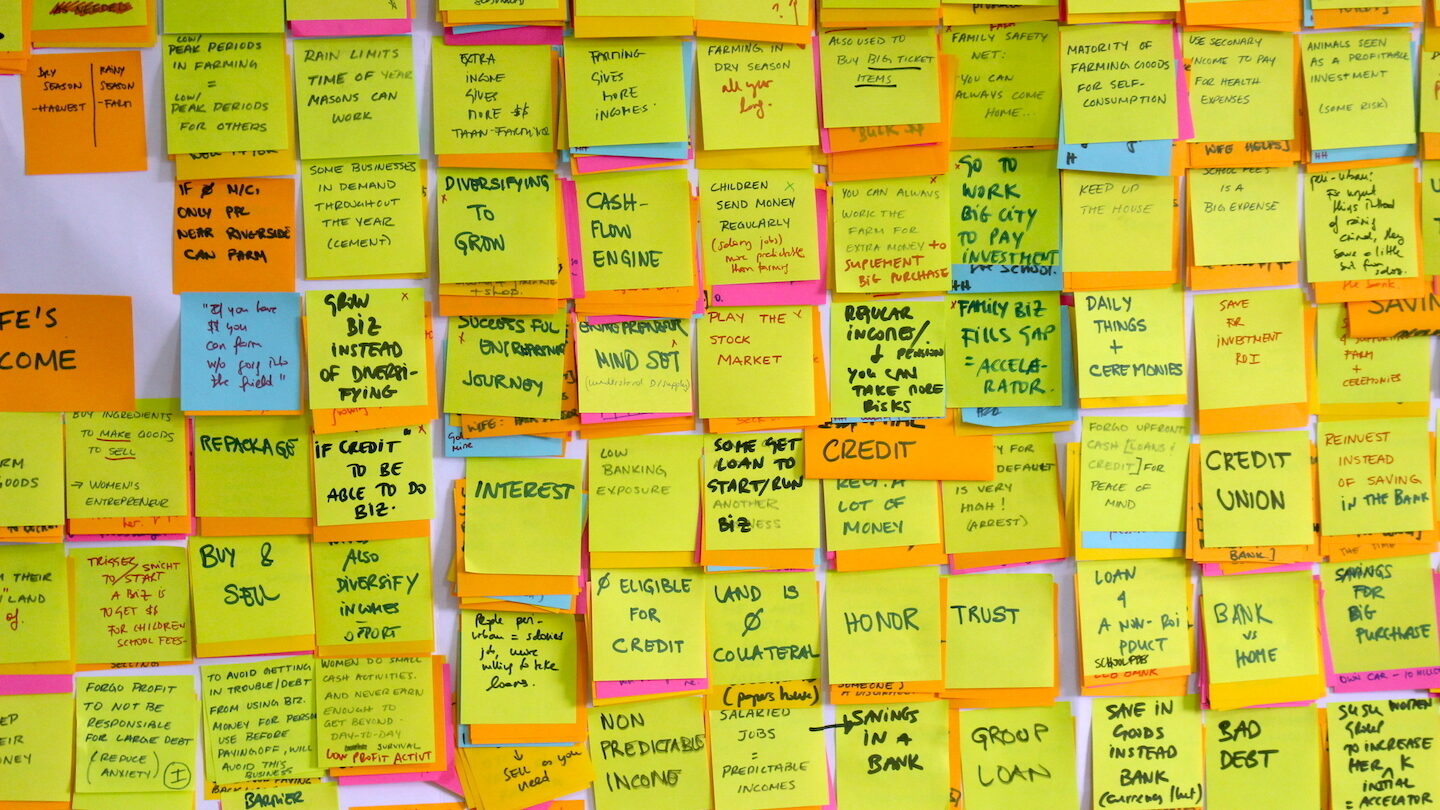 NEEDED
DRY SEASON
-HARVEST
RAINY SEASON
-FARM
LOW/
PEAK PERIODS
IN FARMING
=
LOW/
PEAK PERIODS
FOR OTHERS
RAIN LIMITS
TIME OF YEAR
MASONS CAN
WORK
EXTRA
INCOME
GIVES
MORE $$
THAN FARMING
FARMING
GIVES
MORE
INCOMES.
FARMING IN
DRY SEASON
all year
long.
ALSO USED TO
BUY BIG TICKET
ITEMS
"BULK $$
FAMILY SAFETY
NET:
YOU CAN
ALWAYS COME
HOME...
MAJORITY OF
FARMING GOODS
FOR SELF-
CONSUMPTION
USE SECONARY
INCOME TO PAY
FOR HEALTH
EXPENSES
WIFE HELPS]
ANIMALS SEEN
AS A PROFITABLE
INVESTMENT
(SOME RISK)
HH
IF Ø M/C,
ONLY PPL
NEAR RIVERSIDE
CAN FARM
SOME BUSINESSES
IN DEMAND
THROUGHOUT
THE YEAR
(CEMENT)
DIVERSIFYING
TO
GROW
+ SHOP.
CASH-
FLOW
ENGINE
CHILDREN
SEND MONEY
REGULARLY
(salary jobs)
more predictable
than farming
YOU CAN ALWAYS
WORK THE
FARM FOR
EXTRA MONEY to
SUPLEMENT
BIG PURCHASE
GO TO
WORK
BIG CITY
TO PAY
INVESTMENT
KEEP UP
THE HOUSE
SCHOOL FEES
IS A
BIG EXPENSE
peri-urban:
save a little
the bank.
FE'S
COME
"If you have
$$ you
can farm
w/o going into
the field"
GROW
BIZ
INSTEAD
OF DIVERSI-
FYING
SUCCESSFUL
ENTREPRENEUR
JOURNEY
ENTREPRENEUR
MIND SET
PLAY THE
STOCK
MARKET
REGULAR
INCOMES/
PENSION
YOU CAN
TAKE MORE
RISKS
FAMILY BIZ
FILLS GAP
= ACCELE-
RATOR.
DAILY
THINGS
+
CEREMONIES
SAVE
FOR
INVESTMENT
ROI
SAVIN
FARM
+
CEREMONIES
RM
GOODS
BUY INGREDIENTS
TO MAKE GOODS
TO SELL
→ WOMEN'S
ENTREPRENEUR
REPACKAGE
IF CREDIT
TO BE
ABLE TO DO
BIZ.
INTEREST
LOW
BANKING
EXPOSURE
SOME GET
LOAN TO
START/RUN
ANOTHER
BIZ
CREDIT
LOT OF
MONEY
DEFAULT
IS VERY
HIGH!
(ARREST)
FORGO UPFRONT
CASH [LOANS &
CREDIT] FOR
PEACE OF
MIND
CREDIT
UNION
BANK.]
REINVEST
INSTEAD
OF SAVING
IN THE BANK
THE TIME
THEIR
LAND
of.
TRIGGER/SWICHT
TO START
A BIZ IS
TO GET $$
FOR CHILDREN
SCHOOL FEES-
BUY &
SELL
ALSO
DIVERSIFY
People peri-
urban = salaries
job, more
willing to take
loans.
Ø ELIGIBLE
FOR
CREDIT
LAND IS
Ø
COLLATERAL
(papers house)
HONOR
SOMEONE]
TRUST
LOAN
4
A NON-ROI
PDUCT
BANK
VS
HOME
SAVINGS
FOR
BIG
PURCHASE
FORGO PROFIT
TO NOT BE
RESPONSIBLE
FOR LARGE DEBT
(REDUCE
ANXIETY)
I
TO AVOID GETTING
IN TROUBLE/DEBT
FROM USING BIZ.
MONEY FOR PERSN
USE BEFORE
PAYING OFF, WILL
AVOID THIS
BUSINESS
BARRIER
WOMEN DO SMALL
CASH ACTIVITIES.
AND NEVER EARN
ENOUGH TO
GET BEYOND
DAY-TO-DAY
SURVIVAL
LOW PROFIT ACTIVT
↓
SELL as you
need
NON
PREDICTABLE
INCOME
SALARIED
JOBS
=
PREDICTABLE
INCOMES
SAVINGS
IN A
BANK
GROUP
LOAN
SAVE IN
GOODS
INSTEAD
BANK
BAD
DEBT
SUSU WOMEN
Group
TO INCREASE
HER K
INITIAL
= ACCELATOR